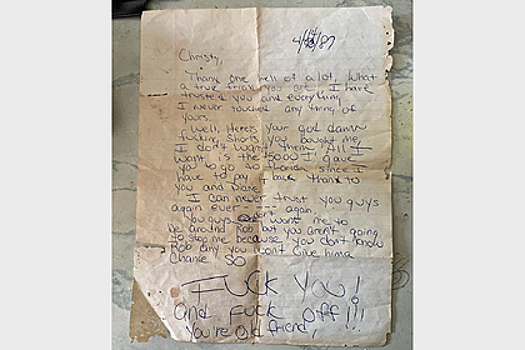 4/14/87
Christy,
Thank one hell of a lot, What
a true friend you are, I have
trusted you and everything
I never touched any thing of
yours.
Well, Heres your god damn
fucking shorts you bought me,
I don't want them. All I
want is the $5000 I gave
you to go to Florida since I
have to pay it back thank to
you and Diane.
I can never trust you guys
again ever ----- again.
You guys don't want me to
be around Rob but you aren't going
to stop me because you don't know
Rob any you won't Give him a
Chance SO
FUCK YOU!
and FUCK OFF!!!
You're old friend, !!